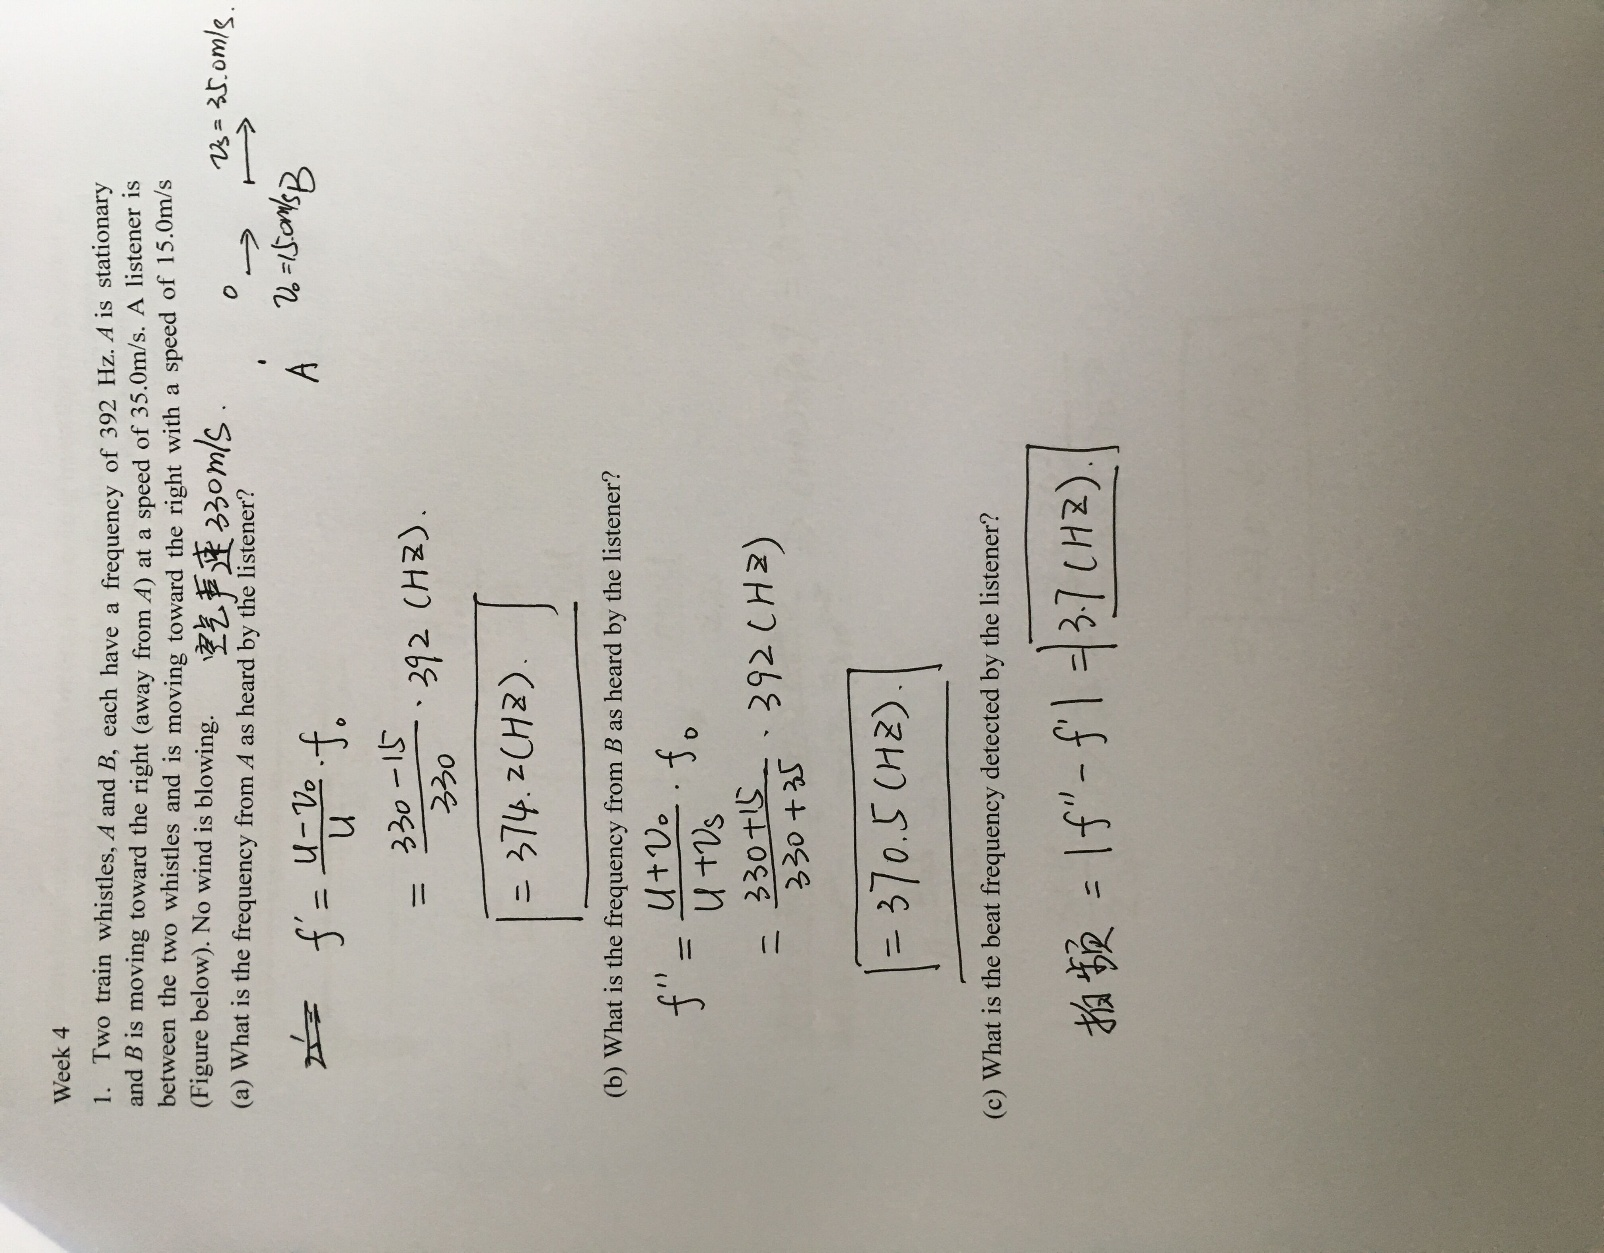 Week 4
1. Two train whistles, A and B, each have a frequency of 392 Hz. A is stationary
and B is moving toward the right (away from A) at a speed of 35.0m/s. A listener is
between the two whistles and is moving toward the right with a speed of 15.0m/s
(Figure below). No wind is blowing. 空气声速330m/s.
A O v₀=15.0m/s B vs=35.0m/s.
(a) What is the frequency from A as heard by the listener?
f' = u-v₀/u · f₀
= 330-15/330 · 392 (HZ).
= 374.2(HZ).
(b) What is the frequency from B as heard by the listener?
f'' = u+v₀/u+vs · f₀
= 330+15/330+35 · 392 (HZ)
= 370.5 (HZ).
(c) What is the beat frequency detected by the listener?
拍频 = |f''-f'| = 3.7 (HZ).